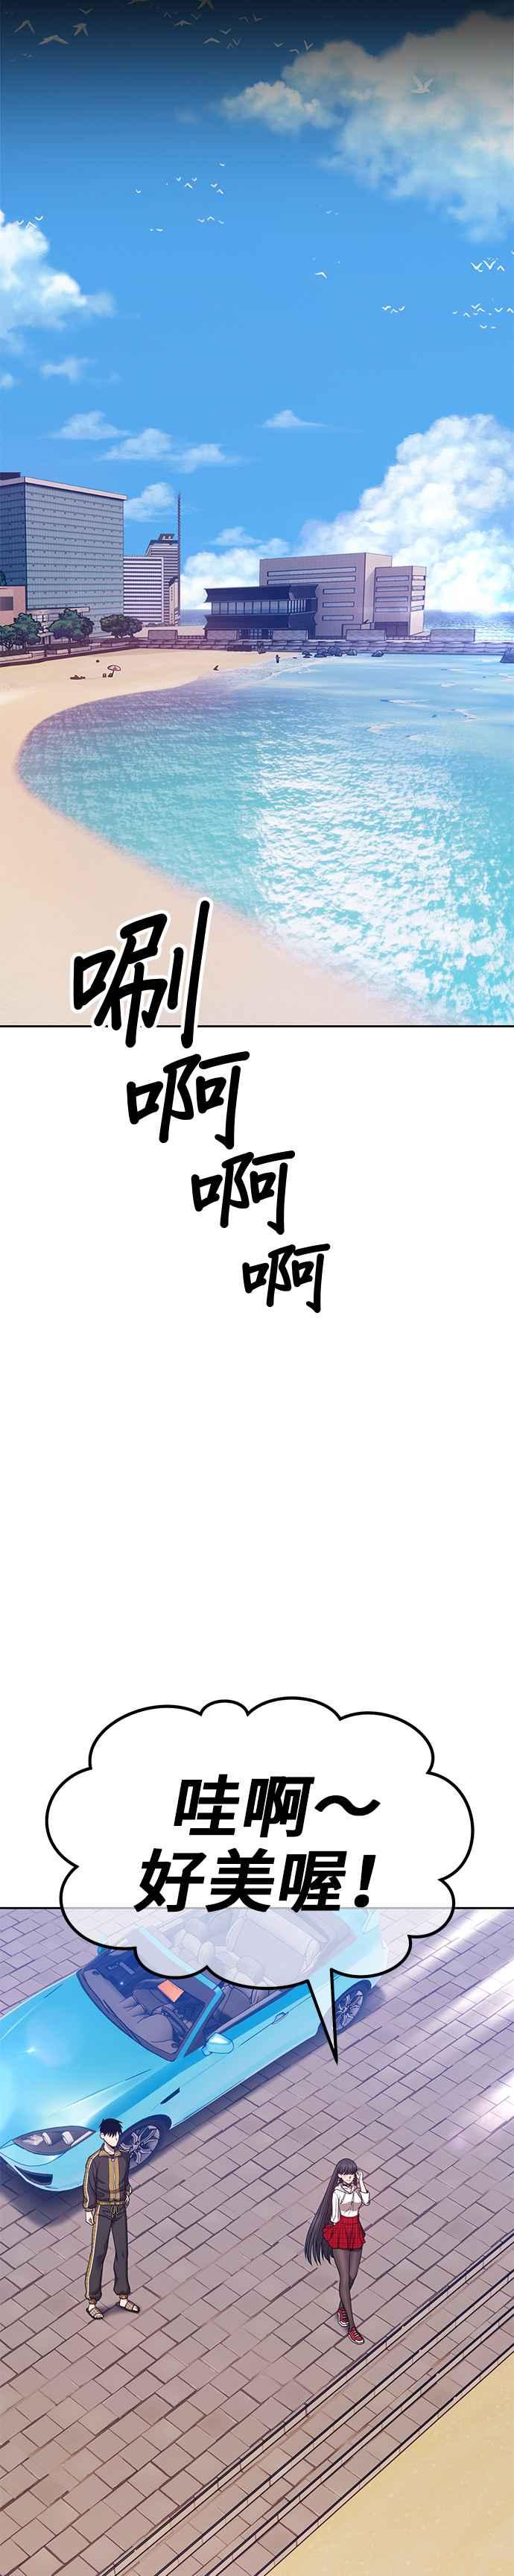 唰
啊
啊
啊
哇啊～
好美喔！